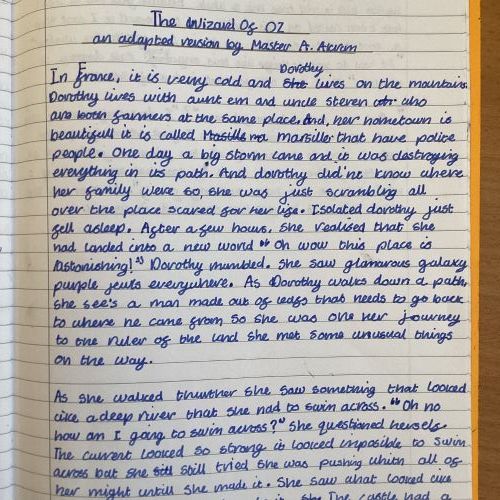 The Wizard Of OZ
an adapted version by Master A. Akram
In France, it is very cold and Dorothy lives on the mountains.
Dorothy lives with aunt em and uncle steven who
are both farmers at the same place. And, her hometown is
beautifull it is called Marsiller that have polite
people. One day a big storm came and it was destroying
everything in its path. And dorothy did'nt know where
her family were so, she was just scrambling all
over the place scared for her life. Isolated dorothy just
fell asleep. After a few hours, she realised that she
had landed into a new world "Oh wow this place is
Astonishing!" Dorothy mumbled. She saw glamarous galaxy
purple jewls everywhere. As Dorothy walks down a path,
she see's a man made out of leafs that needs to go back
to where he came from so she was one her journey
to the ruler of the land she met some unusual things
on the way.
As she walked thurther she saw something that looked
like a deep river that she had to swim across. "Oh no
how am I going to swim across?" She questioned herself.
The current looked so strong it looked imposible to swim
across but she still tried she was pushing whith all of
her might untill she made it. She saw what looked like
The castle had a